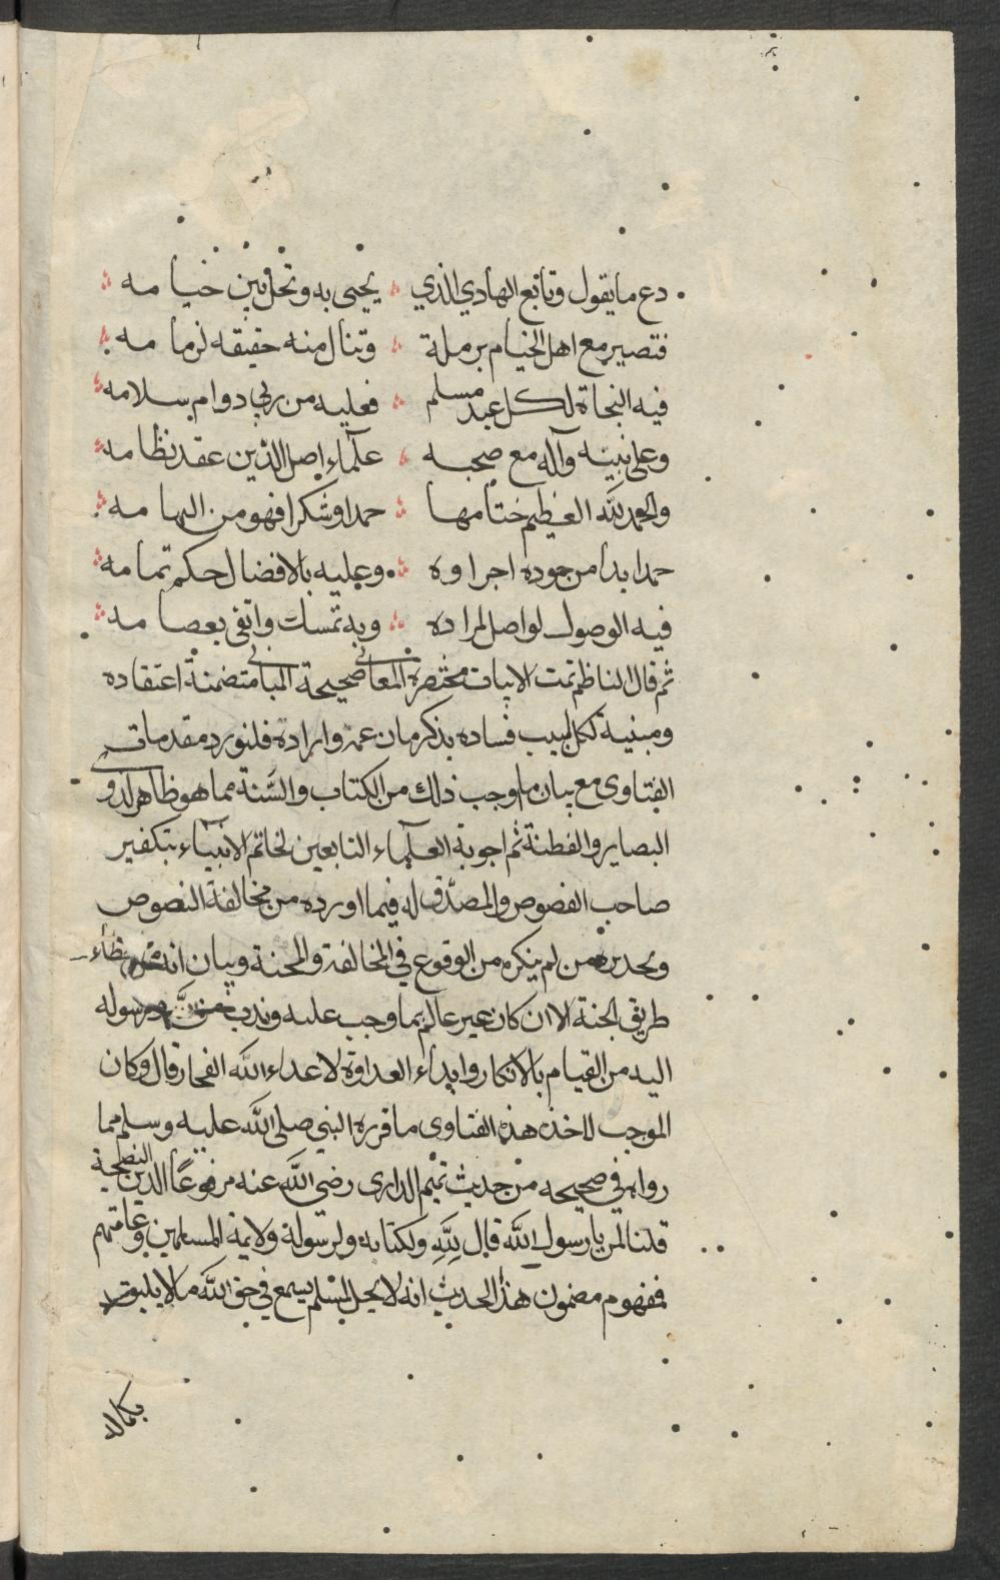 دع ما يقول وتابع الهادي الذي يحيى به وتحل بين خيا مه
فتصير مع اهل الخيام برملة وتنال منه حقيقه لزما مه
فيه النجاة لكل عبد مسلم فعليه من ربي دوام سلامه
وعلى نبيه وآله مع صحبه علماء اصل الدين عقد نظامه
والحمد لله العظيم ختامها حمدا وشكرا فهو من الها مه
حمدا بدا من جوده اجراوه وعليه بالافضال حكم تمامه
فيه الوصول لواصل لمراده وبه تمسك واتقى بعصا مه
ثم قال الناظم تمت الابيات مختصرة المعاني صحيحة المباني متضمنة اعتقاده
ومبنية لكل لبيب فساده بذكر ما عمد وايراده فلنورد مقدمات
الفتاوى مع بيان ما اوجب ذلك من الكتاب والسنة مما هو ظاهر لذوي
البصاير والفطنة ثم اجوبة العلماء التابعين لخاتم الانبياء بتكفير
صاحب الفصوص والمصدق له فيما اورده من مخالفة النصوص
وتحذير من لم ينكره من الوقوع في المخالفة والمحنة وبيان انه خطاء
طريق الجنة الا ان كان غير عالم بما وجب عليه وندب ورسوله
اليه من القيام بالانكار وابداء العداوة لاعداء الله الفجار قال وكان
الموجب لاخذ هذه الفتاوى ما قرره النبي صلى الله عليه وسلم مما
رواه في صحيحه من حديث تميم الداري رضي الله عنه مرفوعا الدين النصيحة
قلنا لمن يا رسول الله قال لله ولكتابه ولرسوله ولايمة المسلمين وعامتهم
فمفهوم مضمون هذا الحديث انه لا يحل لمسلم يسمع في حق الله ما لا يليق
بكماله